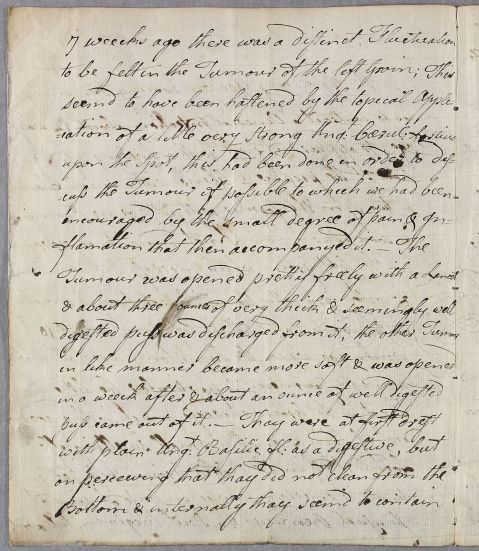 7 weecks ago there was a distinct Fluctuation
to be felt in the Tumour of the left Groin; This
seemd to have been hastened by the topical Appli-
cation of a little very strong Ung: Cærul: fortius
upon the Spot, this had been done in order to dis-
cuss the Tumour if possible to which we had been
encouraged by the small degree of pain & In-
flamation that then accompanyed it. — The
Tumour was opened pretty freely with a Lancet
& about three ounces of very thick & seemingly well
digested puss was discharged from it, the other Tumour
in like manner became more soft & was opened
in a weeck after & about an ounce of well digested
puss came out of it. — Thay were at first drest
with plain Ung: Basilic: fl: as a digestive, but
on perceeving that thay did not clean from the
Bottom & internally thay seemd to contain